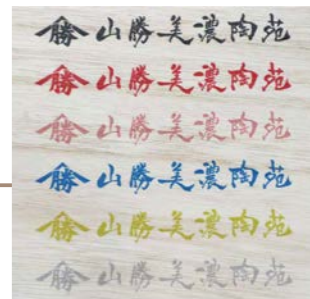 勝 山勝美濃陶苑
勝 山勝美濃陶苑
勝 山勝美濃陶苑
勝 山勝美濃陶苑
勝 山勝美濃陶苑
勝 山勝美濃陶苑